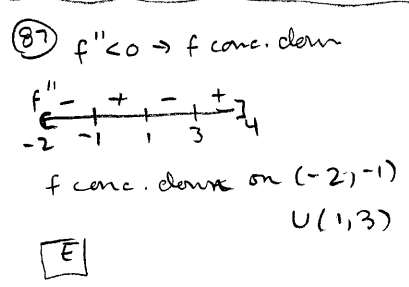 87 f''<0 → f conc. down
f'' - + - +
-2 -1 1 3 4
f conc. down on (-2,-1)
U(1,3)
E